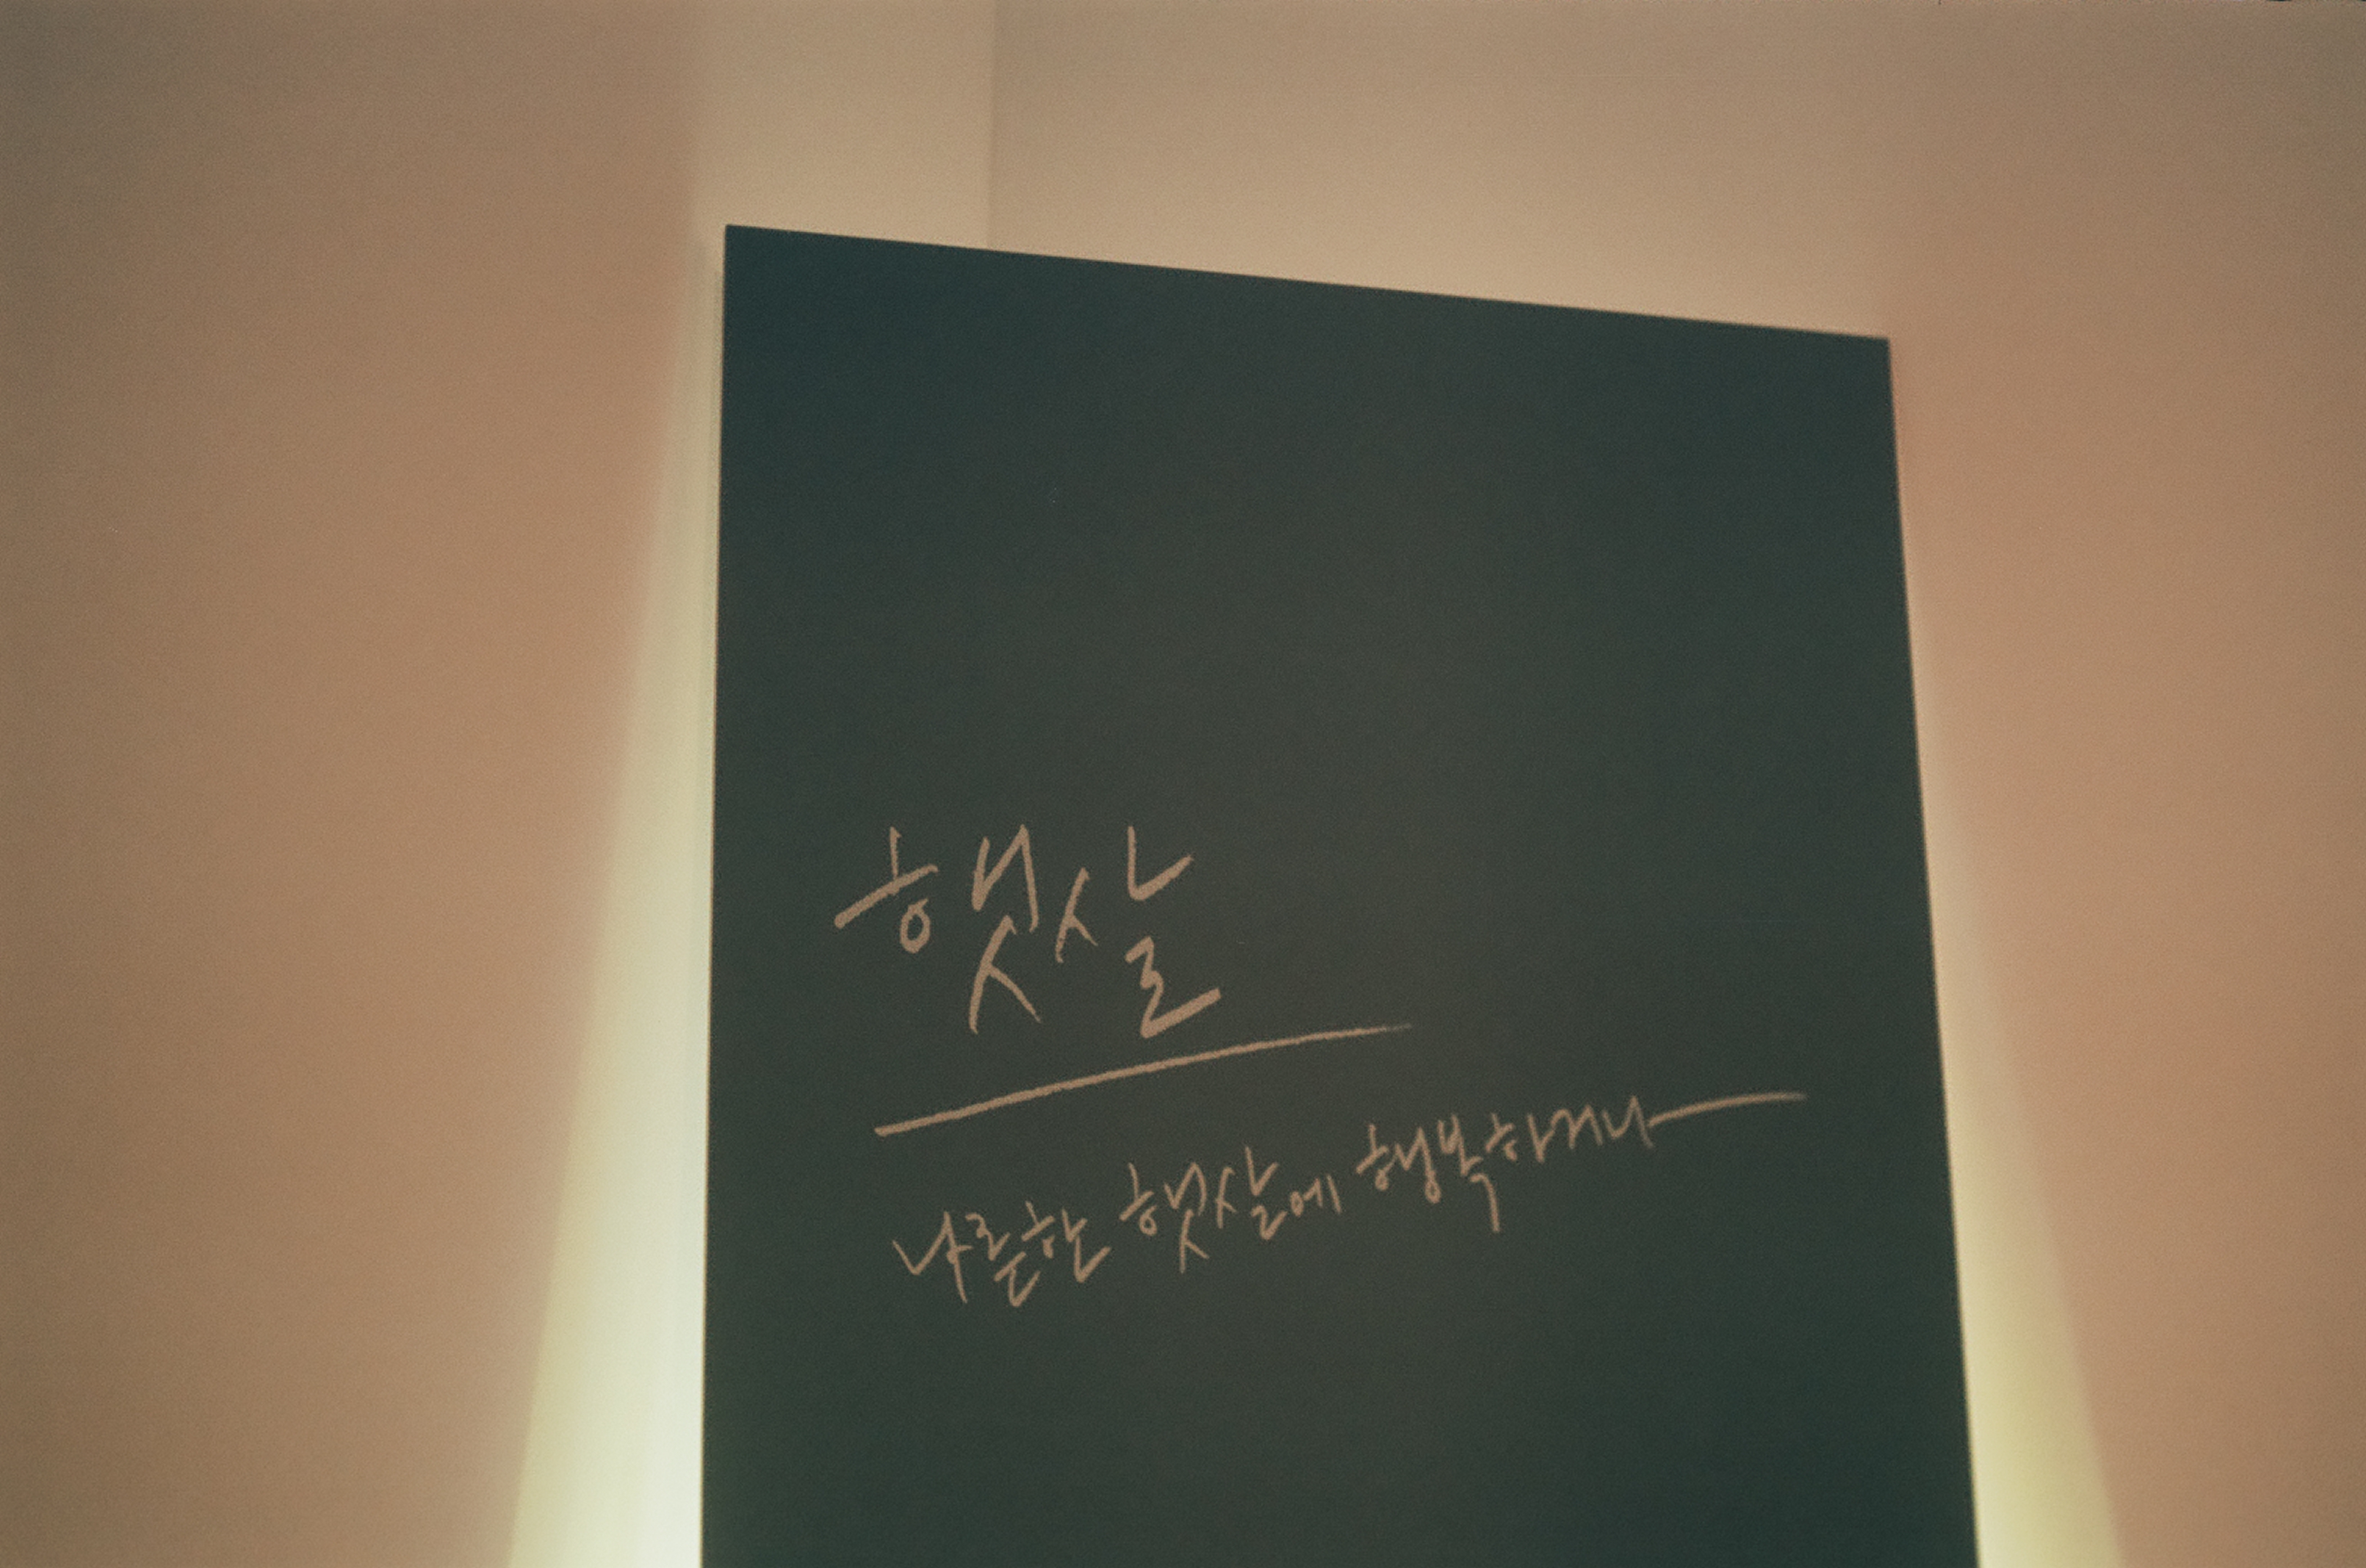 햇살
나른한 햇살에 행복하거나